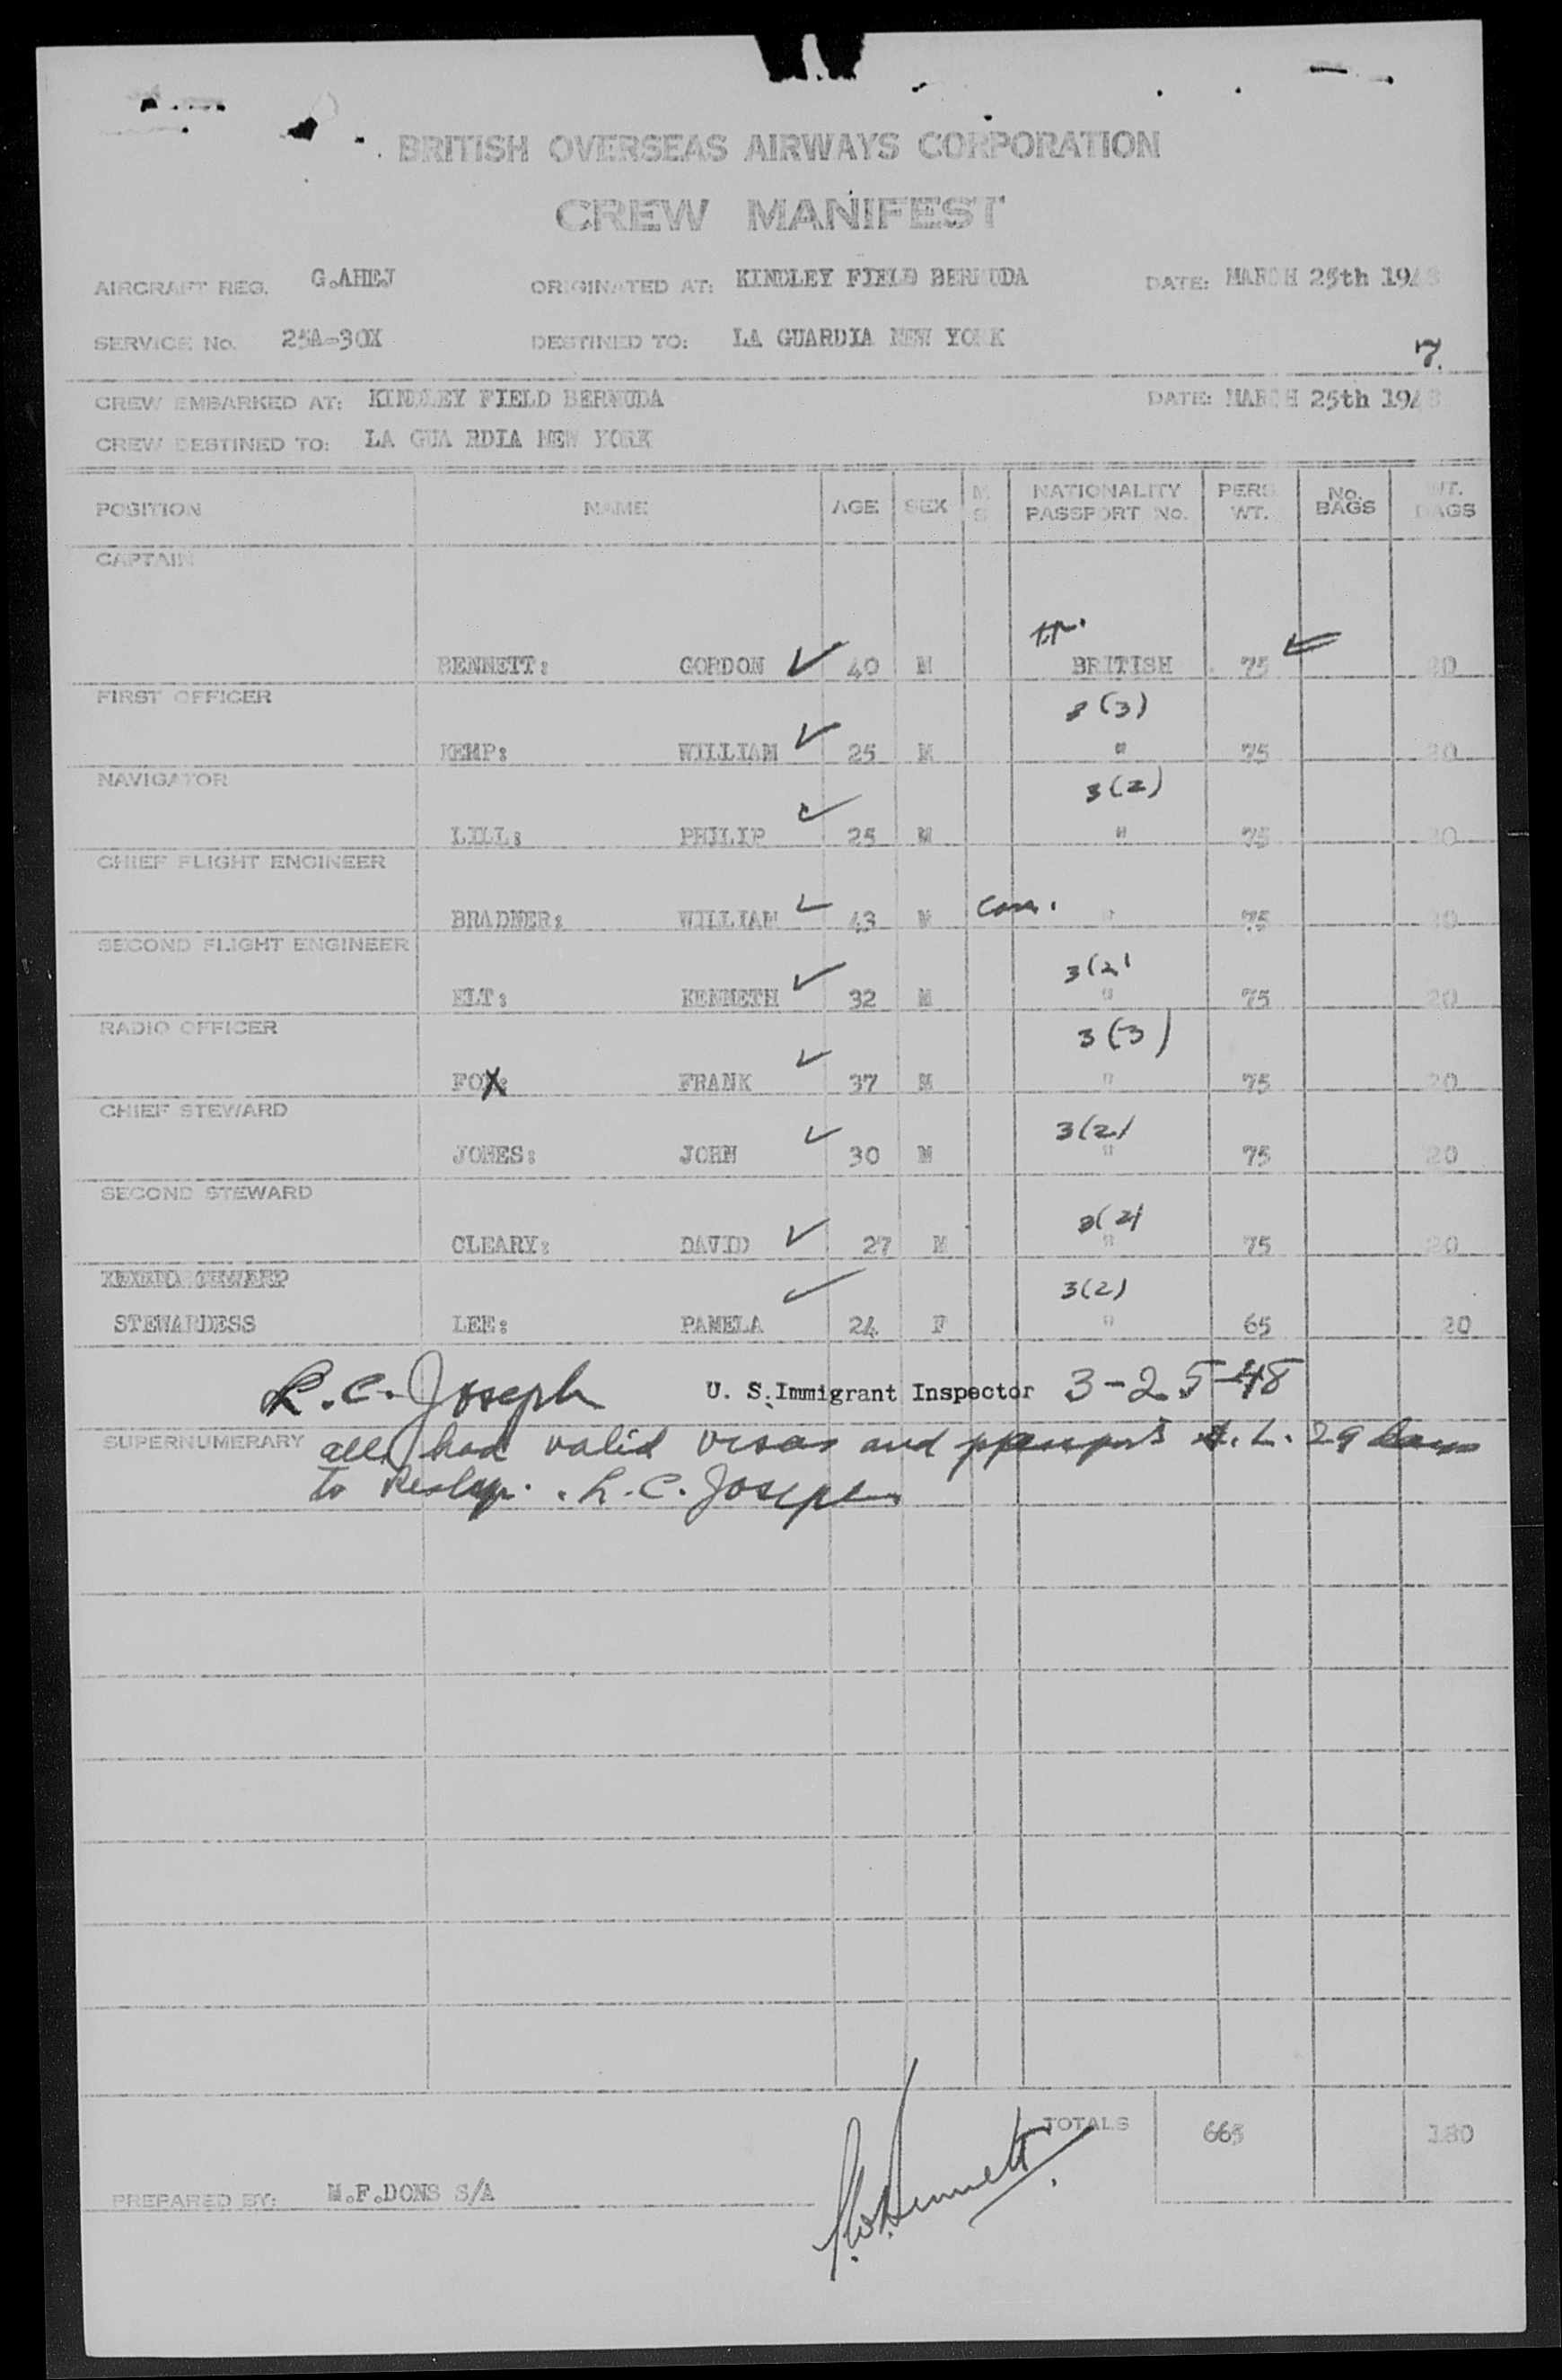 BRITISH OVERSEAS AIRWAYS CORPORATION
CREW MANIFEST
AIRCRAFT REG. G.AHEJ ORIGINATED AT: KINDLEY FIELD BERMUDA DATE: MARCH 25th 1948
SERVICE No. 25A-30X DESTINED TO: LA GUARDIA NEW YORK
7.
CREW EMBARKED AT: KINDLEY FIELD BERMUDA DATE: MARCH 25th 1948
CREW DESTINED TO: LA GUA RDIA NEW YORK
POSITION NAME AGE SEX M S NATIONALITY PASSPORT No. PERS. WT. No. BAGS WT. BAGS
CAPTAIN
BENNETT: GORDON ✓ 40 M BRITISH 75 20
FIRST OFFICER
(3)
KEMP: WILLIAM ✓ 25 M " 75 20
NAVIGATOR
3(2)
LILL: PHILIP ✓ 25 M " 75 20
CHIEF FLIGHT ENGINEER
BRADNER: WILLIAM ✓ 43 M " 75 20
SECOND FLIGHT ENGINEER
3(2)
ELT: KENNETH ✓ 32 M " 75 20
RADIO OFFICER
3(3)
FOX: FRANK ✓ 37 M " 75 20
CHIEF STEWARD
3(2)
JONES: JOHN ✓ 30 M " 75 20
SECOND STEWARD
3(2)
CLEARY: DAVID ✓ 27 M " 75 20
3(2)
STEWARDESS LEE: PAMELA ✓ 24 F " 65 20
L.C. Joseph U. S. Immigrant Inspector 3-25-48
SUPERNUMERARY all had valid visas and passports 29 days
to . L.C. Joseph
TOTALS 665 180
PREPARED BY: M.F.DONS S/A
Bennett